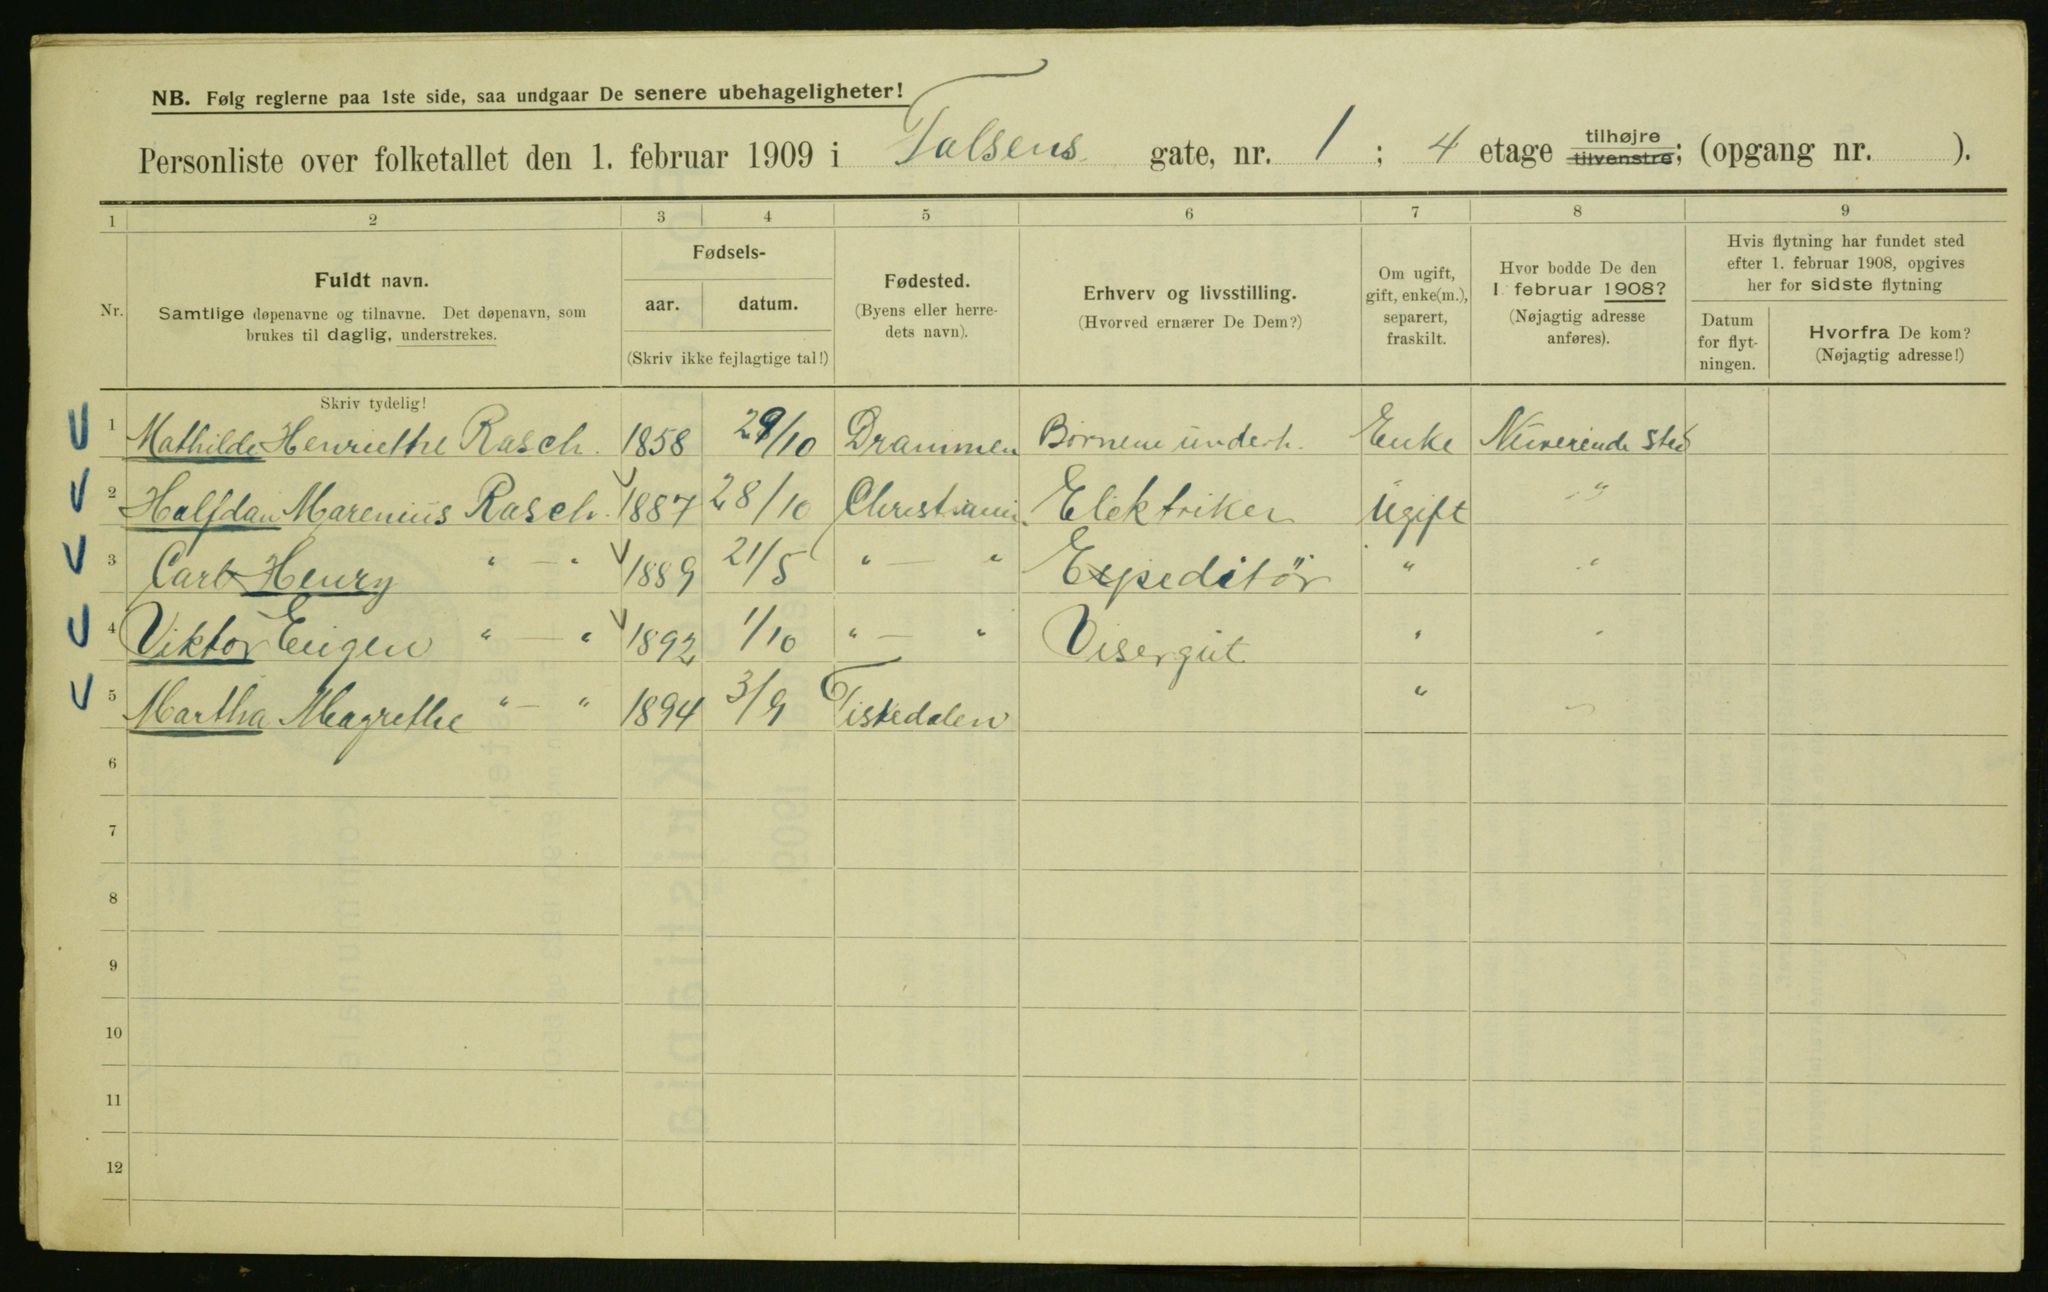 NB. Følg reglerne paa 1ste side, saa undgaar De senere ubehageligheter!
Personliste over folketallet den 1. februar 1909 i Falsens gate, nr. 1 ; 4 etage tilhøjre tilvenstre; (opgang nr. ).
1 2 3 4 5 6 7 8 9
Nr.
Fuldt navn.
Samtlige døpenavne og tilnavne. Det døpenavn, som
brukes til daglig, understrekes.
Skriv tydelig!
Fødsels-
aar. datum.
(Skriv ikke fejlagtige tal!)
Fødested.
(Byens eller herre-
dets navn).
Erhverv og livsstilling.
(Hvorved ernærer De Dem?)
Om ugift,
gift, enke(m.),
separert,
fraskilt.
Hvor bodde De den
1 februar 1908?
(Nøjagtig adresse
anføres).
Hvis flytning har fundet sted
efter 1. februar 1908, opgives
her for sidste flytning
Datum
for flyt-
ningen.
Hvorfra De kom?
(Nøjagtig adresse!)
V 1 Mathilde Henriethe Rasch. 1858 29/10 Drammen Börnene underh. Enke Nuverende sted
V 2 Halfdan Marenius Rasch. V 1887 28/10 Christiania Elektriker Ugift "
V 3 Carl Henry " — " V 1889 21/5 " — " Expeditör " "
V 4 Viktor Eugen " — " V 1892 1/10 " — " Visergut " "
V 5 Martha Magrethe " — " 1894 3/9 Tistedalen " "
6
7
8
9
10
11
12